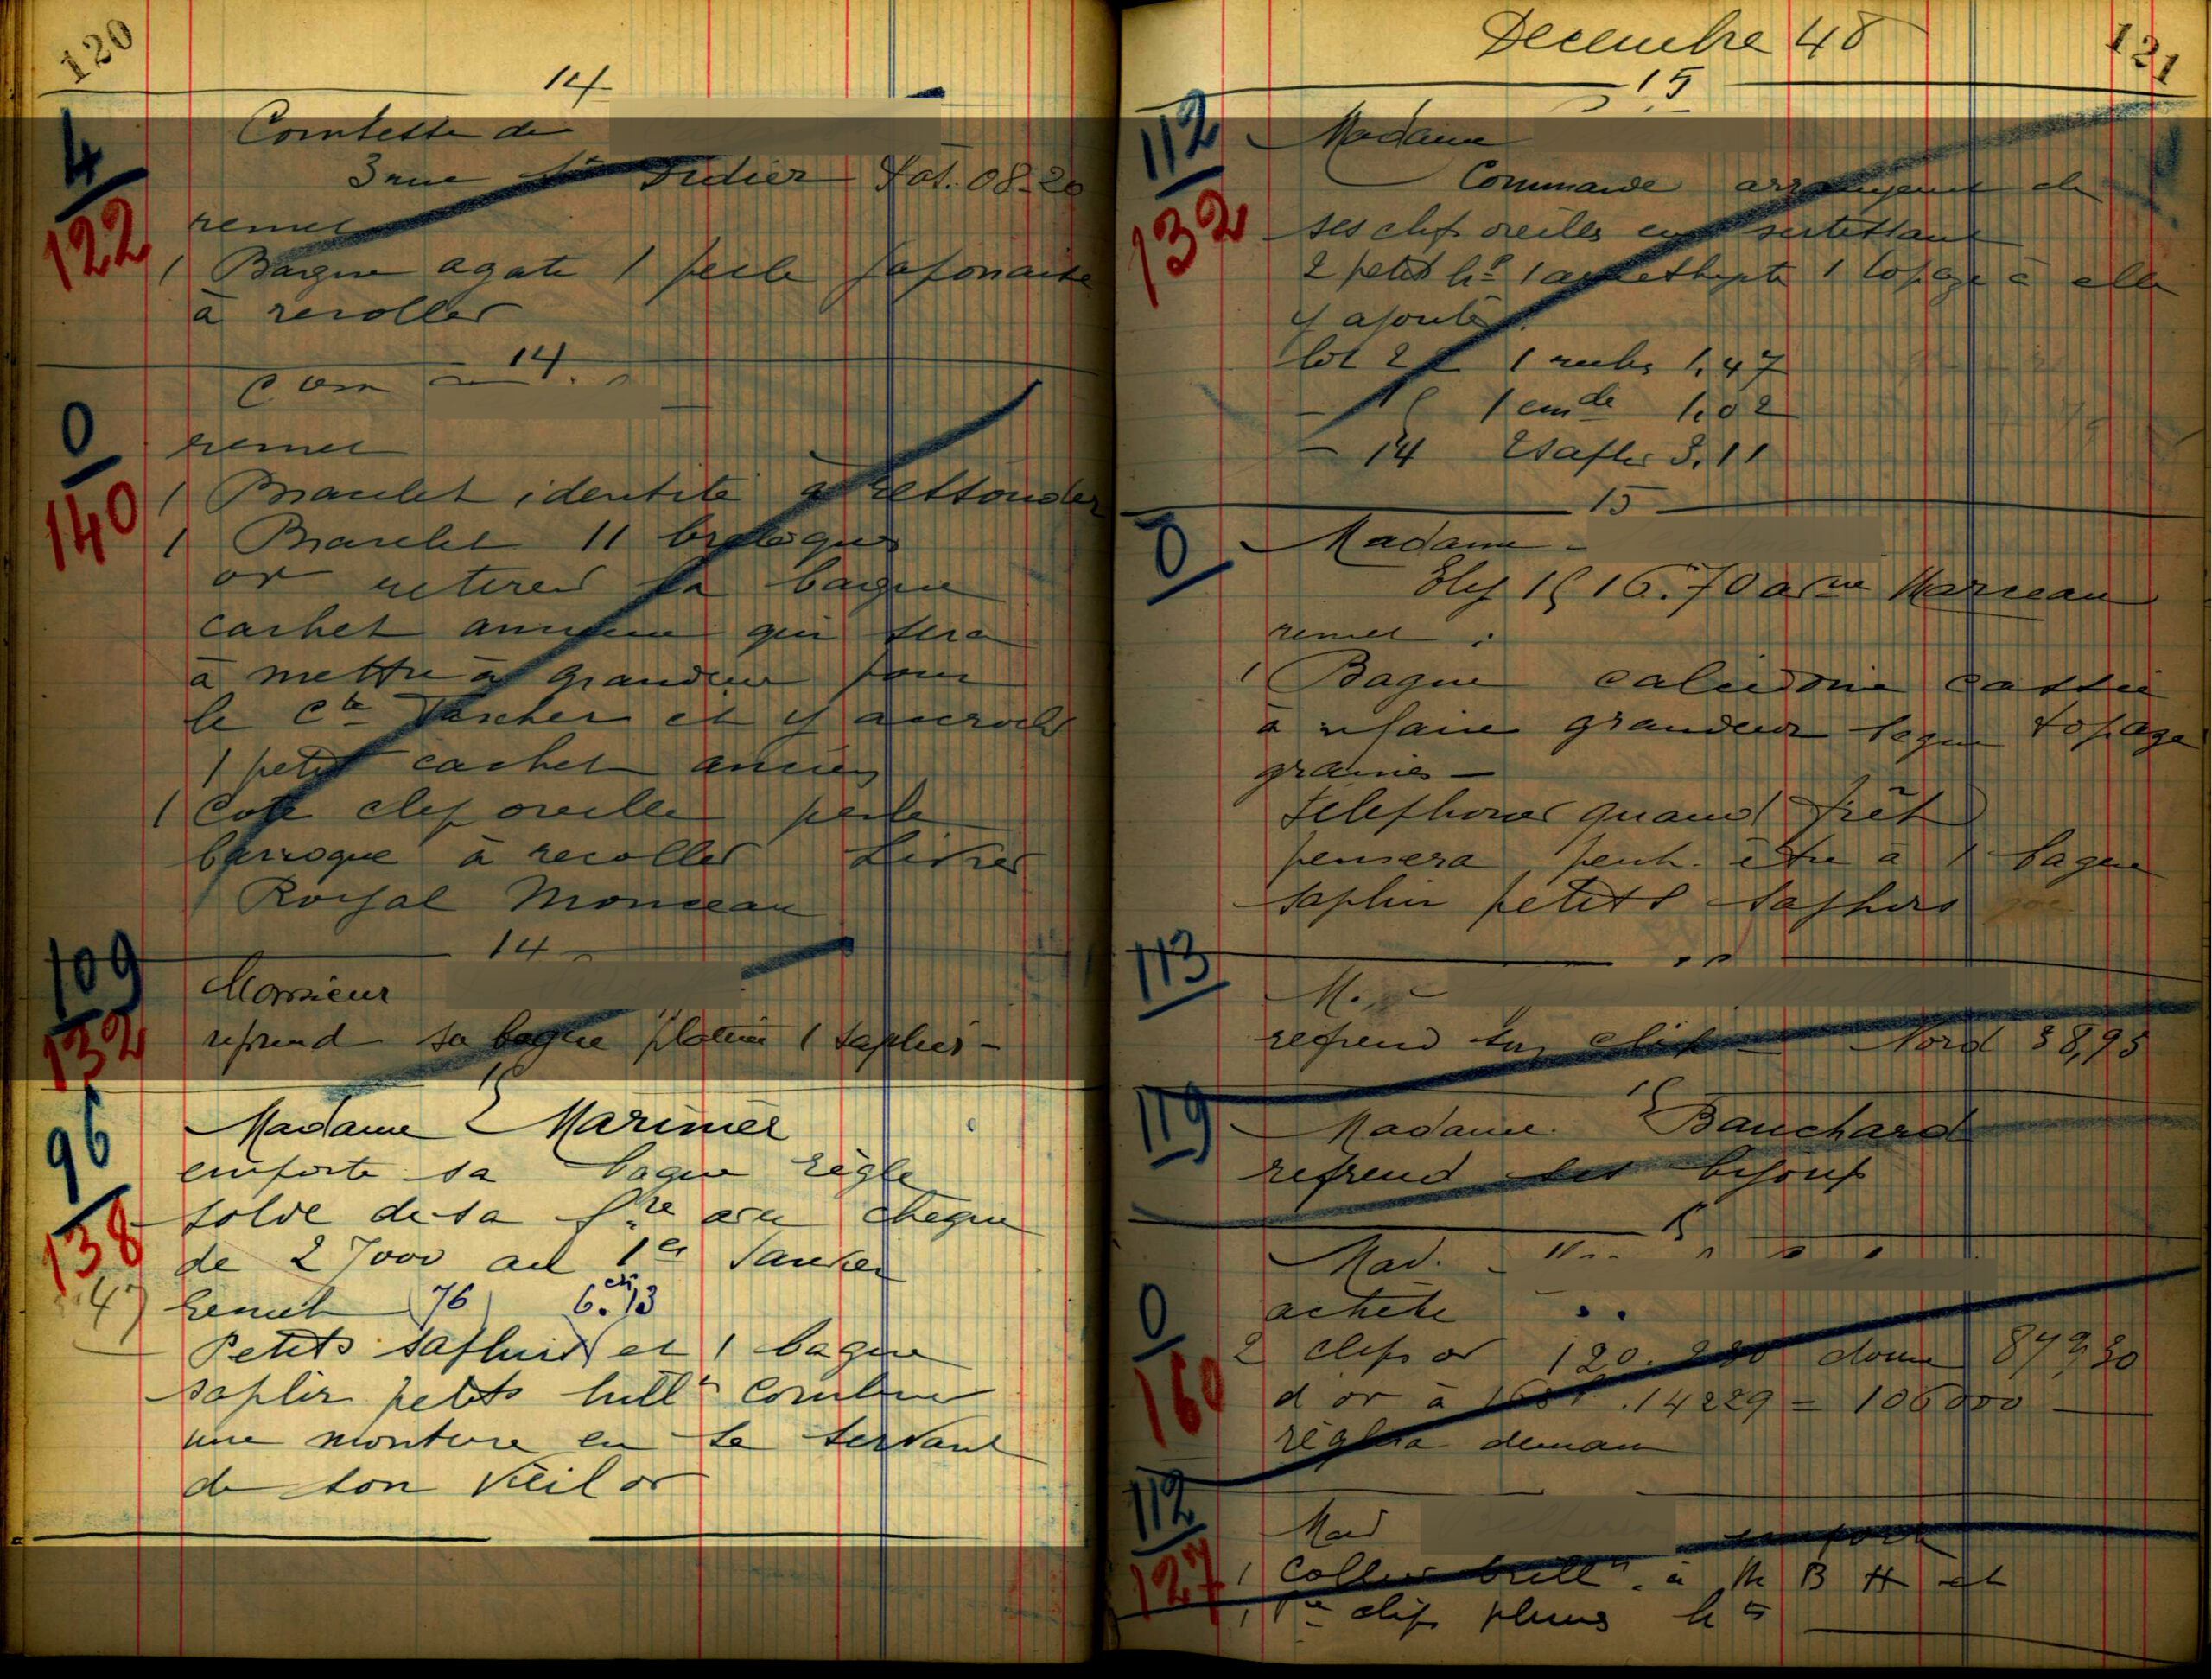 120
14
Comtesse de
3 rue St Didier Pas. 08-20
remet
1 Bague agate 1 perle japonaise
à recoller
4
122
14
remet
1 Bracelet identité à ressouder
1 Bracelet 11 breloques
or retirer la bague
cachet qui sera
à mettre à grandeur pour
le Cte Tascher et y accrocher
1 petit cachet ancien
1 Coté clip oreille perle
barroque à recoller Livrer
Royal Monceau
0
140
14
Monsieur
reprend sa bague platine 1 saphir -
109
132
15
Madame Marinier
emporte sa bague règle
solde de sa fre avec chèque
de 27000 au 1er Janvier
Remet (76) 6.13
Petits saphirs et 1 bague
saphir petits brillts
une monture en se servant
de son vieil or
96
138
47
Decembre 48
121
15
Madame
Commande arrangement de
ses clips oreilles en sertissant
2 petits 1 amethyste 1 topaze à elle
y ajouter
lot 22 1 rubis 1,47
- 15 1 emde 1,02
- 14 2 saphirs 3,11
112
132
15
Madame
Ely 15 16. 70 avenue Marceau
remet :
1 Bague calcédoine cassée
à refaire grandeur bague topaze
gravée -
téléphoner quand prêt
pensera peut-être à 1 bague
saphir petits saphirs
0
M.
reprend son clip - Nord 38,95
113
15
Madame Bauchard
reprend ses bijoux
119
15
Mad.
achète
2 clips or 120. 280 donne 87 9,30
d'or à .14229 = 106000
règlera demain
0
160
Mad emporte
1 Collier brillts à Mr B H et
1 Pre clips plumes
112
127